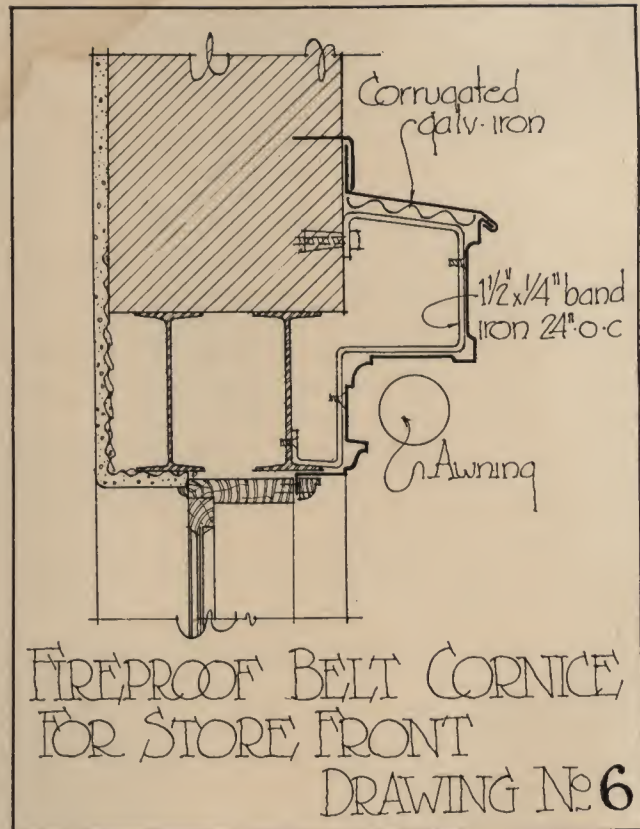 Corrugated
galv. iron
1½" x ¼" band
iron 24" o.c
Awning
FIREPROOF BELT CORNICE
FOR STORE FRONT
DRAWING No 6